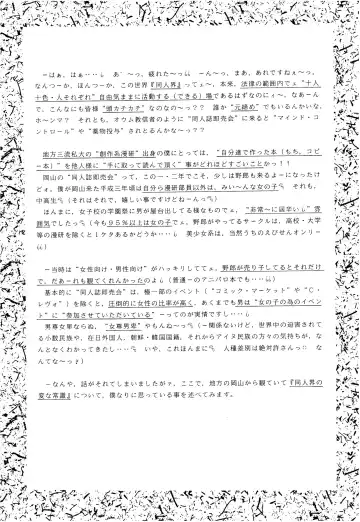 －はぁ、はぁ‥‥い あ゛～っ、疲れた～っい ーん～っ、まあ、あれですねェ～っ。
なんつーか、ほんつーか、この世界『同人界』ってェ～、本来、法律の範囲内でェ“十人
十色・人それぞれ”自由気ままに活動する（できる）場であるはずなのにィ～、なあーん
で、こんなにも皆様“頭カチカチ”なのなの～っ？？ 誰か“元締め”でもいるんかいな、
ホーンマ？ それとも、オウム教信者のように“同人誌即売会”に来ると“マインド・コ
ントロール”や“薬物投与”されとるんかな～っ？？
地方三流私大の“創作系漫研”出身の僕にとっては、“自分達で作った本（もち、コピ
ー本）”を他人様に“手に取って読んで頂く”事がどれほどすごいことかっ！
岡山の“同人誌即売会”って、この一・二年でこそ、少しは野郎も来るよーになったけ
どォ。僕が岡山来た平成三年頃は自分ら漫研部員以外は、みい～んな女の子 それも、
中高生（それはそれで、嬉しい事ですけどねーんっ）
ほんまに、女子校の学園祭に男が屋台出してる様なものでェ、“非常～に居辛いい”雰
囲気でしたっ（今も９５％以上は女の子でェ、野郎がやってるサークルは、高校・大学
等の漫研を除くと１ケタあるかどうか‥‥。 美少女系は、当然うちのえびせんオンリー
い）
－当時は“女性向け・男性向け”がハッキリしててェ、野郎が売り子してるとそれだけ
で、だあーれも観てくれんかったのょ（普通のアニパロ本でも‥‥い）
基本的に“同人誌即売会”は、極一部のイベント（“コミック・マーケット”や“Ｃ・
レヴォ”）を除くと、圧倒的に女性の比率が高く、あくまでも男は“女の子の為のイベン
ト”に“参加させていただいている”ーってのが実情ですし‥‥い
男尊女卑ならぬ、“女尊男卑”やもんね～っ（一関係ないけど、世界中の迫害されて
る小数民族や、在日外国人、朝鮮・韓国国籍、それからアイヌ民族の方々の気持ちが、な
んとなくわかってきたし‥‥ いや、これほんまに 人種差別は絶対許さんっ な
んてな～っ♪）
－なんや、話がそれてしまいましたがァ、ここで、地方の岡山から観ていて『同人界の
変な常識』について、僕なりに思っている事を述べてみます。